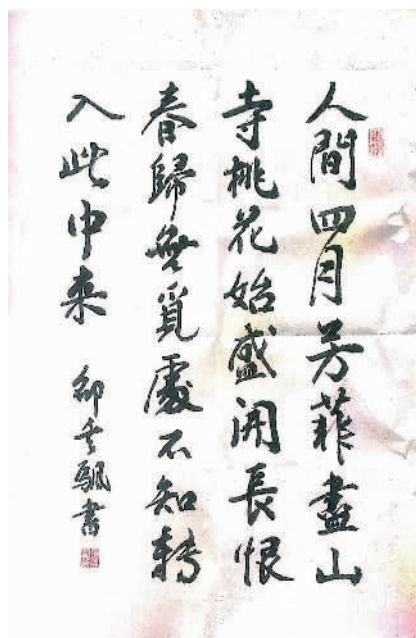 人間四月芳菲盡山
寺桃花始盛開長恨
春歸無覓處不知轉
入此中来 書